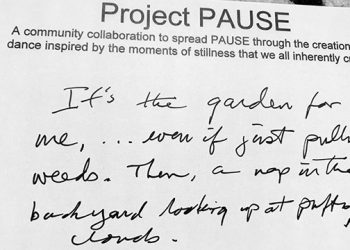 Project PAUSE
A community collaboration to spread PAUSE through the creation
dance inspired by the moments of stillness that we all inherently
It's the garden for
me, ... even if just pull
weeds. Then, a nap in the
backyard looking up at puffy
clouds.